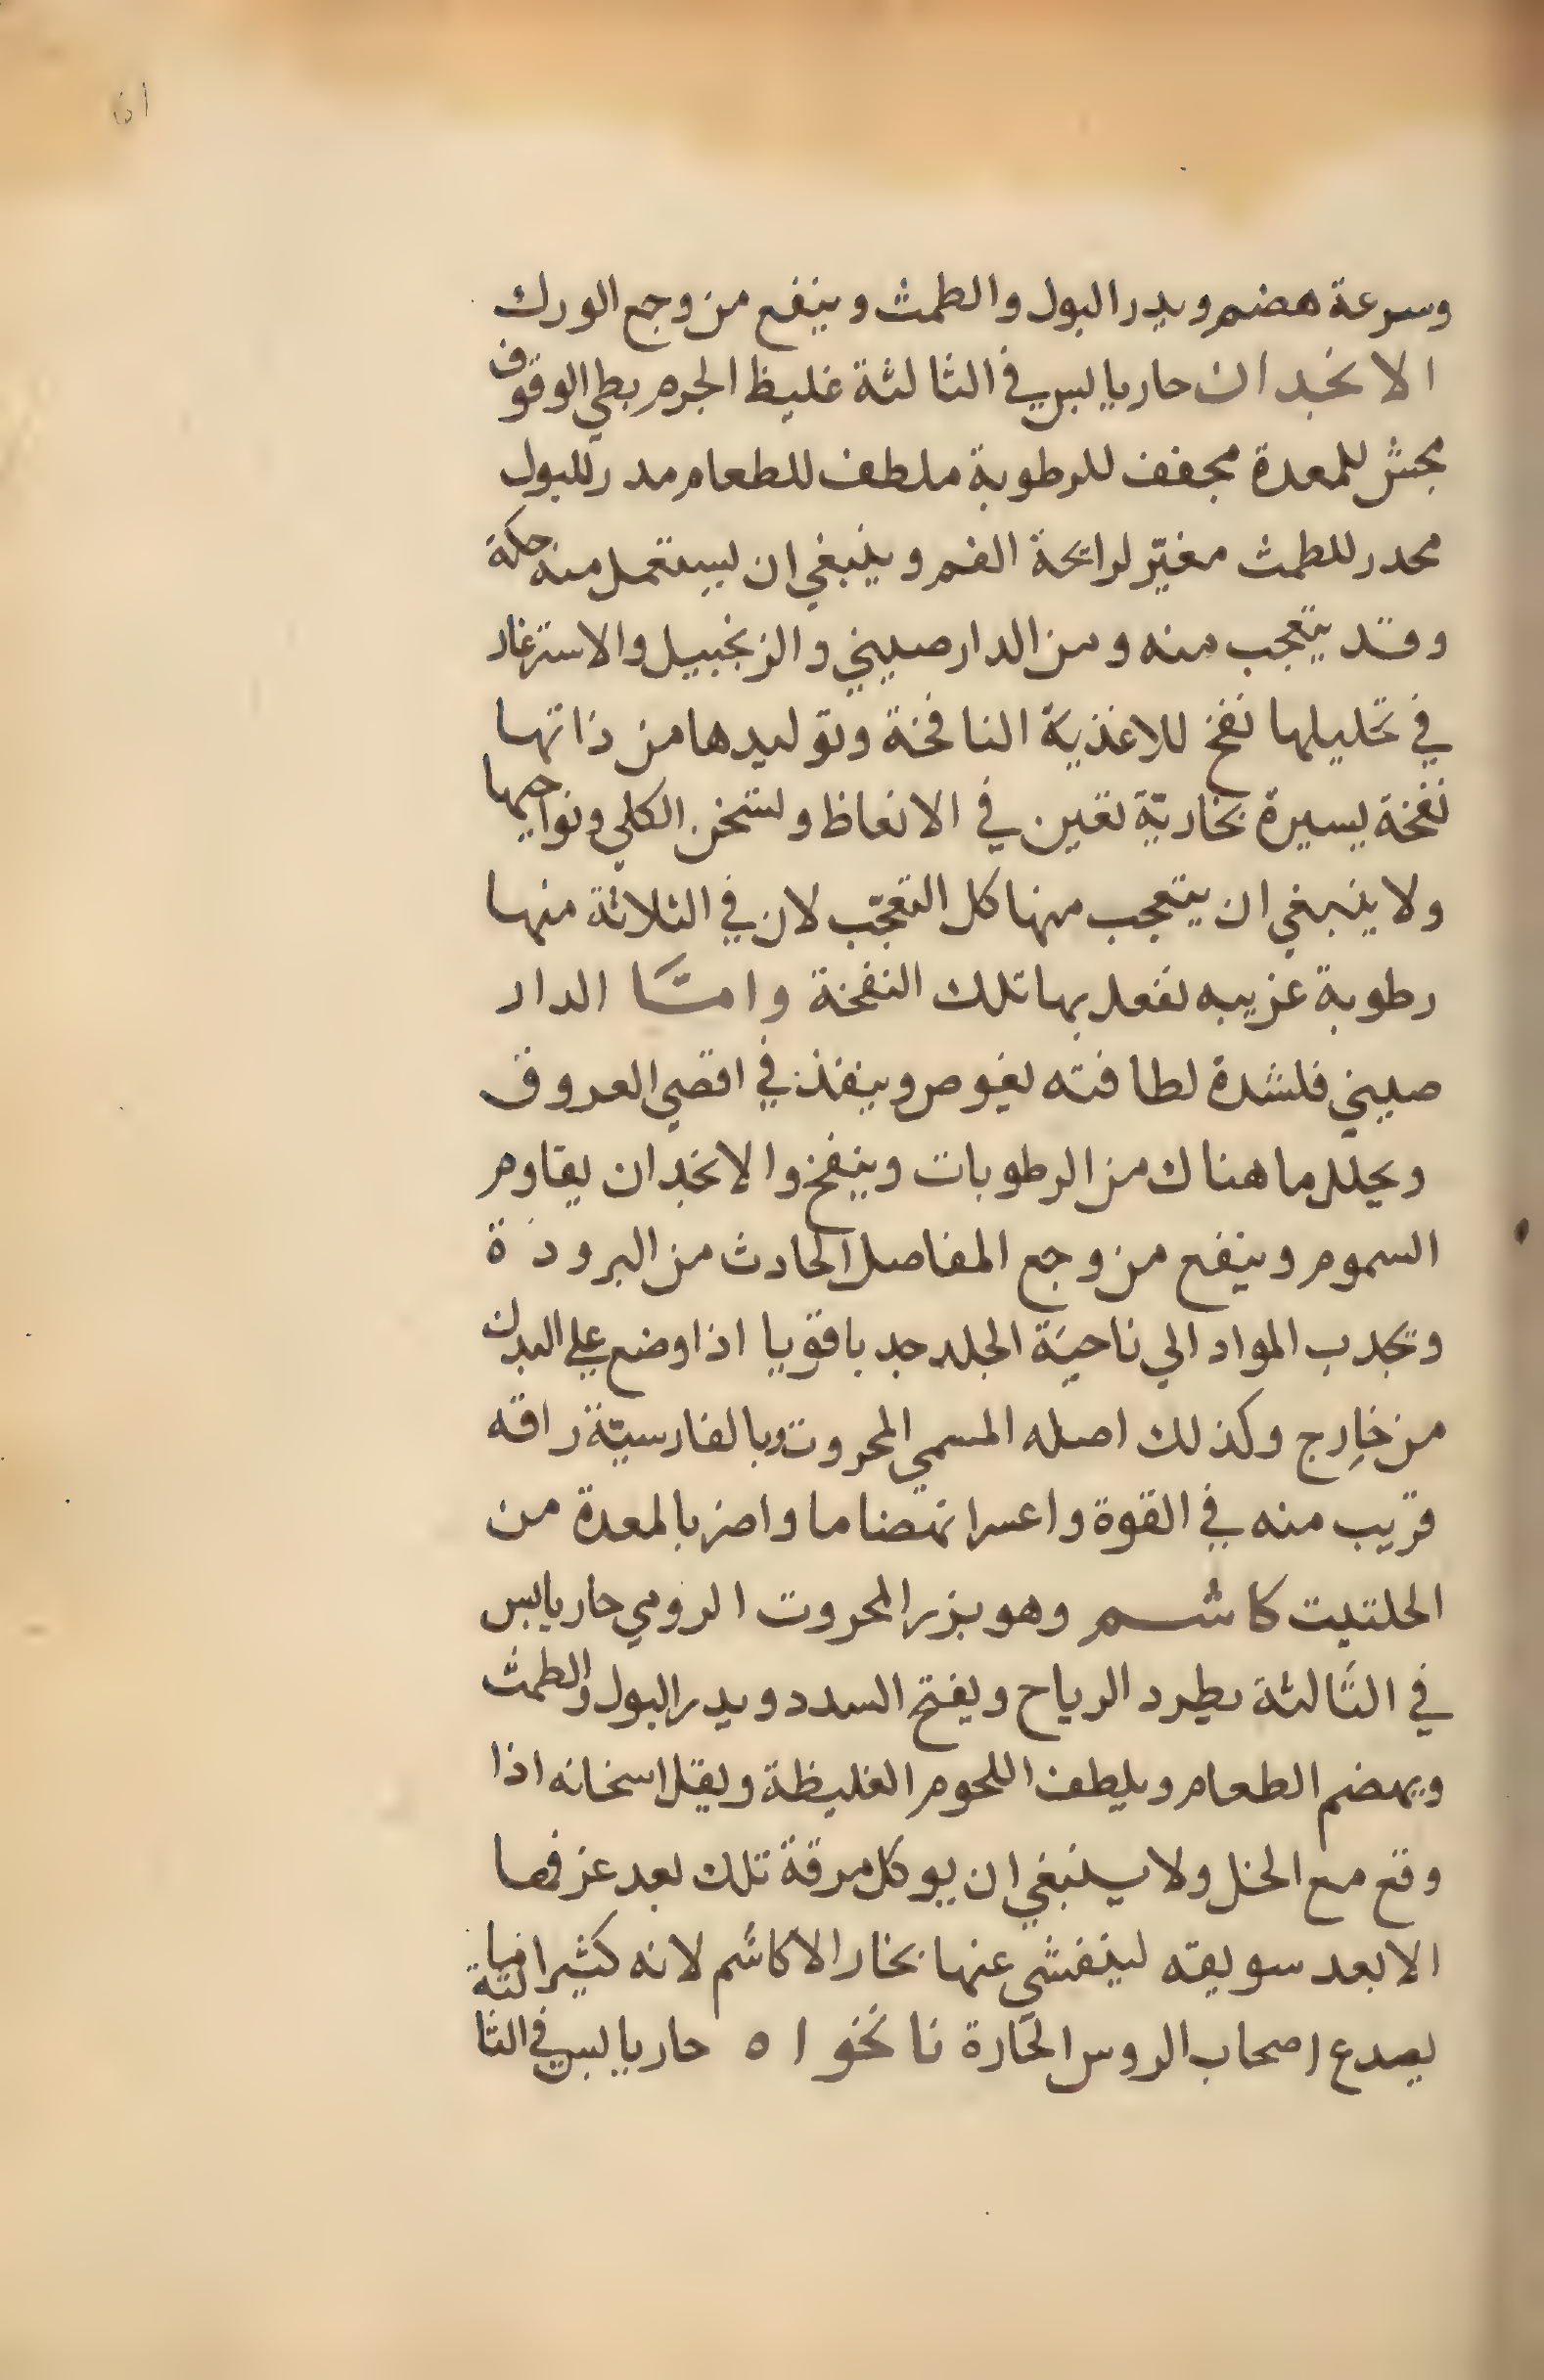 ٥١
وسرعة هضم ويدر البول والطمث وينفع من وجع الورك
الانجدان حار يابس في الثالثة غليظ الجرم بطي الوقوف
مجش للمعدة مجفف للرطوبة ملطف للطعام مدر للبول
محدر للطمث مغيّر لرايحة الفم وينبغي ان يستعمل منه حكة
وقد يتعجب منه ومن الدارصيني والزنجبيل والاسترغار
في تحليلها نفخ للاغذية النافخة وتوليدها من ذاتها
نفخة يسيرة بخاريّة تعين في الانعاظ وتسخن الكلي ونواحيها
ولا ينبغي ان يتعجب منها كل التعجّب لان في الثلاثة منها
رطوبة غريبه تفعل بها تلك النفخة وامّا الدار
صيني فلشدة لطافته يغوص وينفذ في اقصي العروق
ويحلل ما هناك من الرطوبات وينفخ والانجدان يقاوم
السموم وينفع من وجع المفاصل الحادث من البرودة
وتجدب المواد الي ناحية الجلد جدبا قويا اذا وضع علي البدن
من خارج وكذلك اصله المسمي المحروت وبالفارسيّة راقه
قريب منه في القوة واعسر انهضاما واضر بالمعدة من
الحلتيت كاشم وهو بزر المحروت الرومي حار يابس
في الثالثة يطرد الرياح ويفتح السدد ويدر البول والطمث
ويهضم الطعام ويلطف اللحوم الغليظة ويقل اسخانه اذا
وقع مع الخل ولا ينبغي ان يوكل مرقة تلك بعد غرفها
الا بعد سويقه لينفشي عنها بخار الاكاشم لانه كثيرا ما
يصدع اصحاب الروس الحارة نانخواه حار يابس في الثالثة